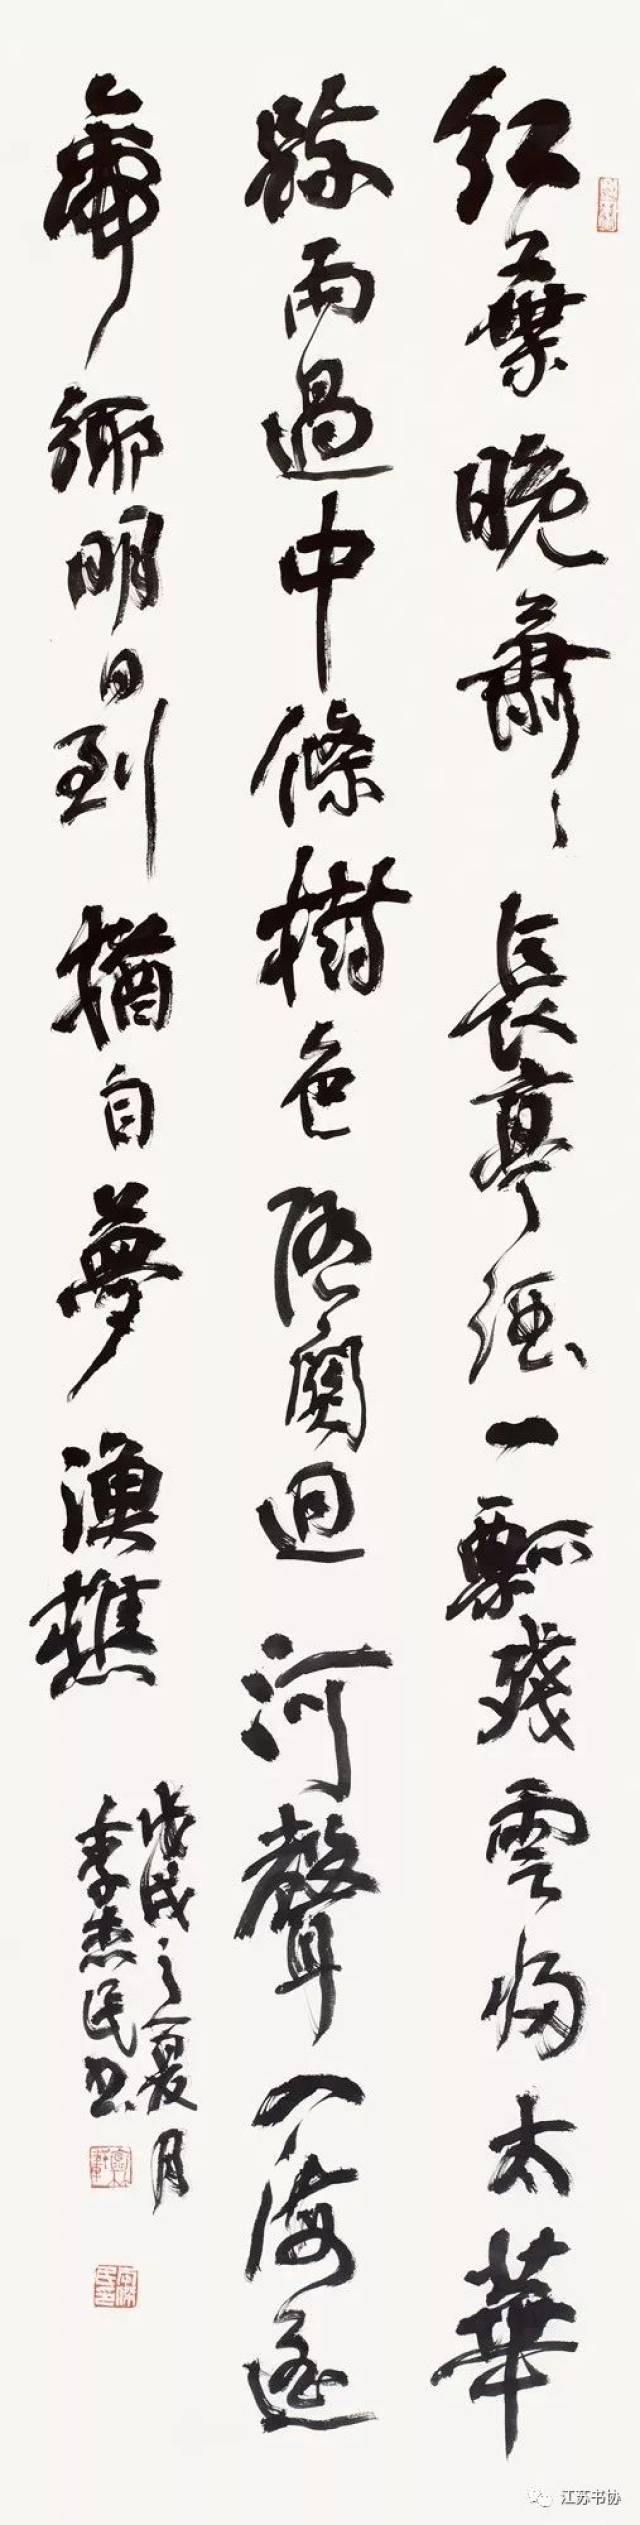 紅葉晚蕭〻長亭酒一瓢殘雲歸太華
疎雨過中條樹色隨關迥河聲入海遥
帝鄉明日到猶自夢漁樵
戊戌之夏月
杰民书
江苏书协